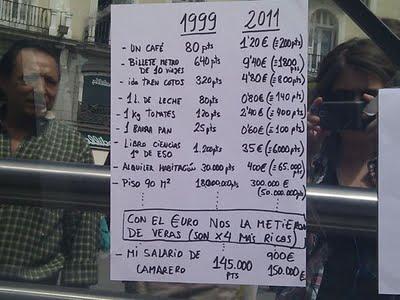 1999 2011
- UN CAFÉ 80 pts 1'20 € (= 200 pts)
- BILLETE METRO DE 10 VIAJES 640 pts 9'40 € (= 1800 pts)
- ida TREN COTOS 320 pts 4'80 € (= 800 pts)
- 1 L. DE LECHE 80 pts 0'80 € (= 140 pts)
- 1 kg TOMATES 120 pts 2'40 € (= 400 pts)
- 1 BARRA PAN 25 pts 0'60 € (= 100 pts)
- LIBRO CIENCIAS 1º DE ESO 1.200 pts 35 € (= 6000 pts)
- ALQUILER HABITACIÓN 30.000 pts 400 € (= 65.000 pts)
- PISO 90 M² pts 300.000 € (50.000.000 pts)
CON EL €URO NOS LA METIERON
DE VERAS (SON X4 MÁS RICOS)
- MI SALARIO DE CAMARERO 145.000 PTS 900 € 150.000